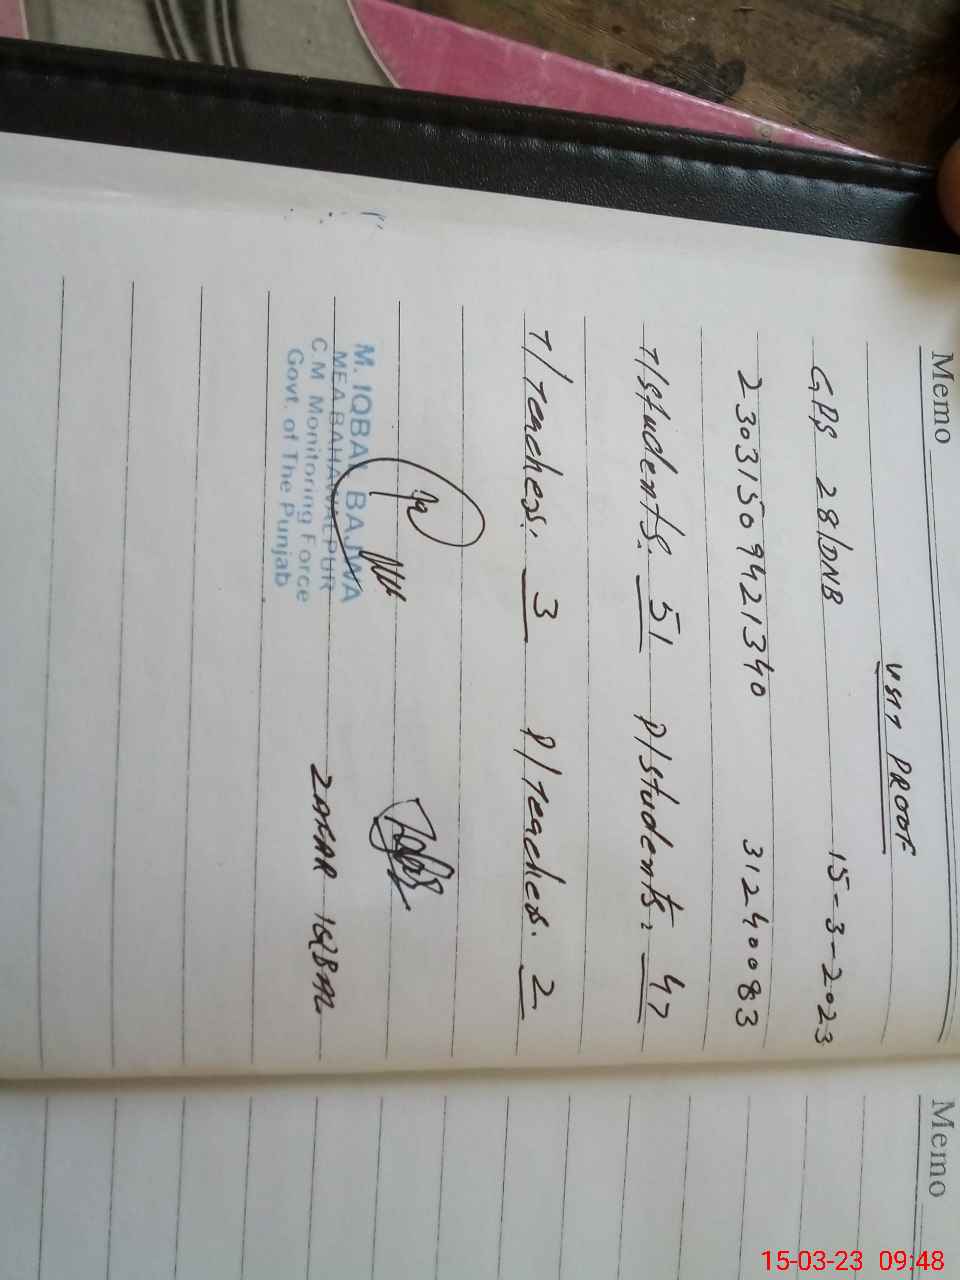 Memo
VSIT PROOF
GPS 28/DNB 15-3-2023
23031509421340 31240083
T/students. 51 P/students. 47
T/Teaches. 3 P/Teaches. 2
M. IQBAL BAJWA
MEA BAHAWALPUR
C.M Monitoring Force
Govt. of The Punjab
ZAFAR IQBAL
Memo
15-03-23 09:48